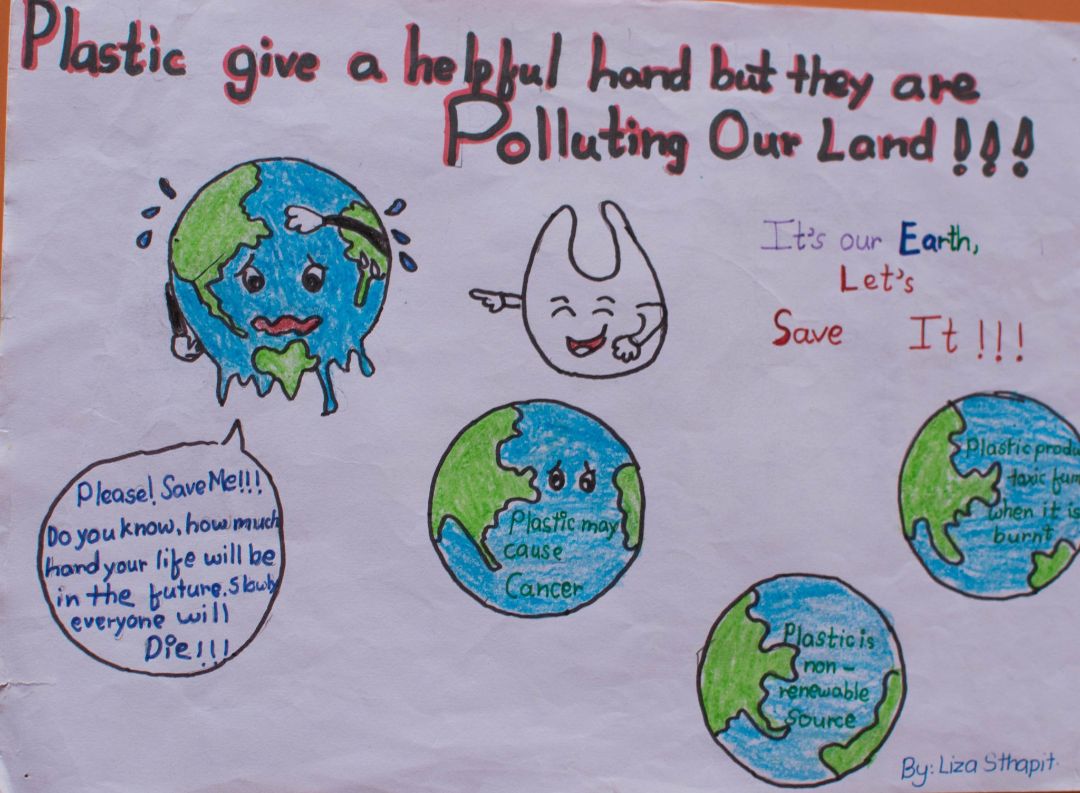 Plastic give a helpful hand but they are
Polluting Our Land!!!
It's our Earth,
Let's
Save It!!!
Please! Save Me!!!
Do you know, how much
hard your life will be
in the future. Slowly
everyone will
Die!!!
Plastic may
cause
Cancer
Plastic produ
toxic fum
when it is
burnt
Plastic is
non-
renewable
Source
By: Liza Sthapit.